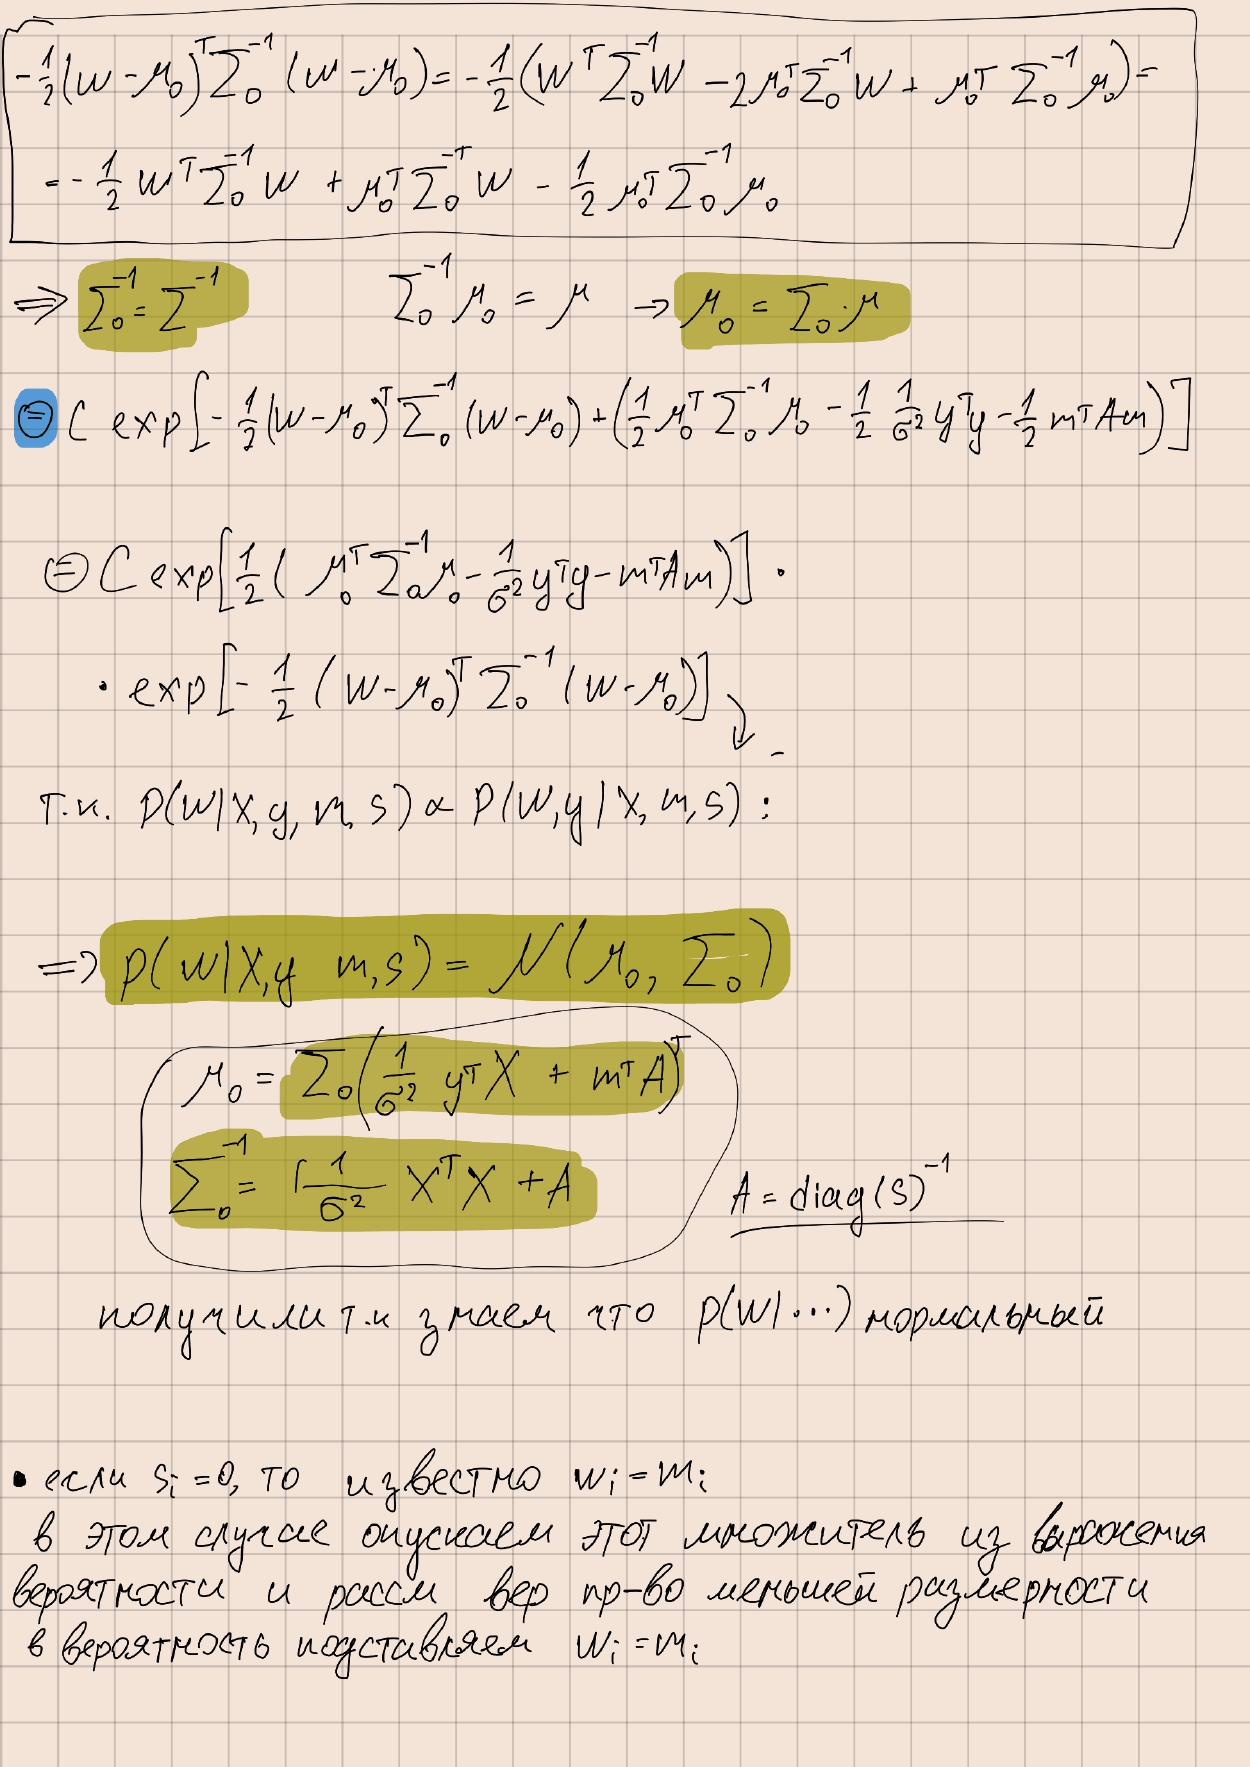 -½(w-μ₀)ᵀΣ₀⁻¹(w-μ₀) = -½(wᵀΣ₀⁻¹w - 2μ₀ᵀΣ₀⁻¹w + μ₀ᵀΣ₀⁻¹μ₀) =
= -½wᵀΣ₀⁻¹w + μ₀ᵀΣ₀⁻ᵀw - ½μ₀ᵀΣ₀⁻¹μ₀
⇒ Σ₀⁻¹ = Σ⁻¹ Σ₀⁻¹μ₀ = μ → μ₀ = Σ₀·μ
⊜ C exp[-½(w-μ₀)ᵀΣ₀⁻¹(w-μ₀) + (½μ₀ᵀΣ₀⁻¹μ₀ - ½ 1/σ² yᵀy - ½mᵀAm)]
⊜ C exp[½(μ₀ᵀΣ₀⁻¹μ₀ - 1/σ² yᵀy - mᵀAm)] ·
· exp[-½(w-μ₀)ᵀΣ₀⁻¹(w-μ₀)]
т.к. p(w|X,y,m,s) ∝ p(w,y|X,m,s) :
⇒ p(w|X,y m,s) = N(μ₀, Σ₀)
μ₀ = Σ₀(1/σ² yᵀX + mᵀA)ᵀ
Σ₀⁻¹ = 1/σ² XᵀX + A A = diag(s)⁻¹
получили т.к знаем что p(w|...) нормальный
• если sᵢ=0, то известно wᵢ=mᵢ
в этом случае опускаем этот множитель из выражения
вероятности и рассм вер пр-во меньшей размерности
в вероятность подставляем wᵢ=mᵢ